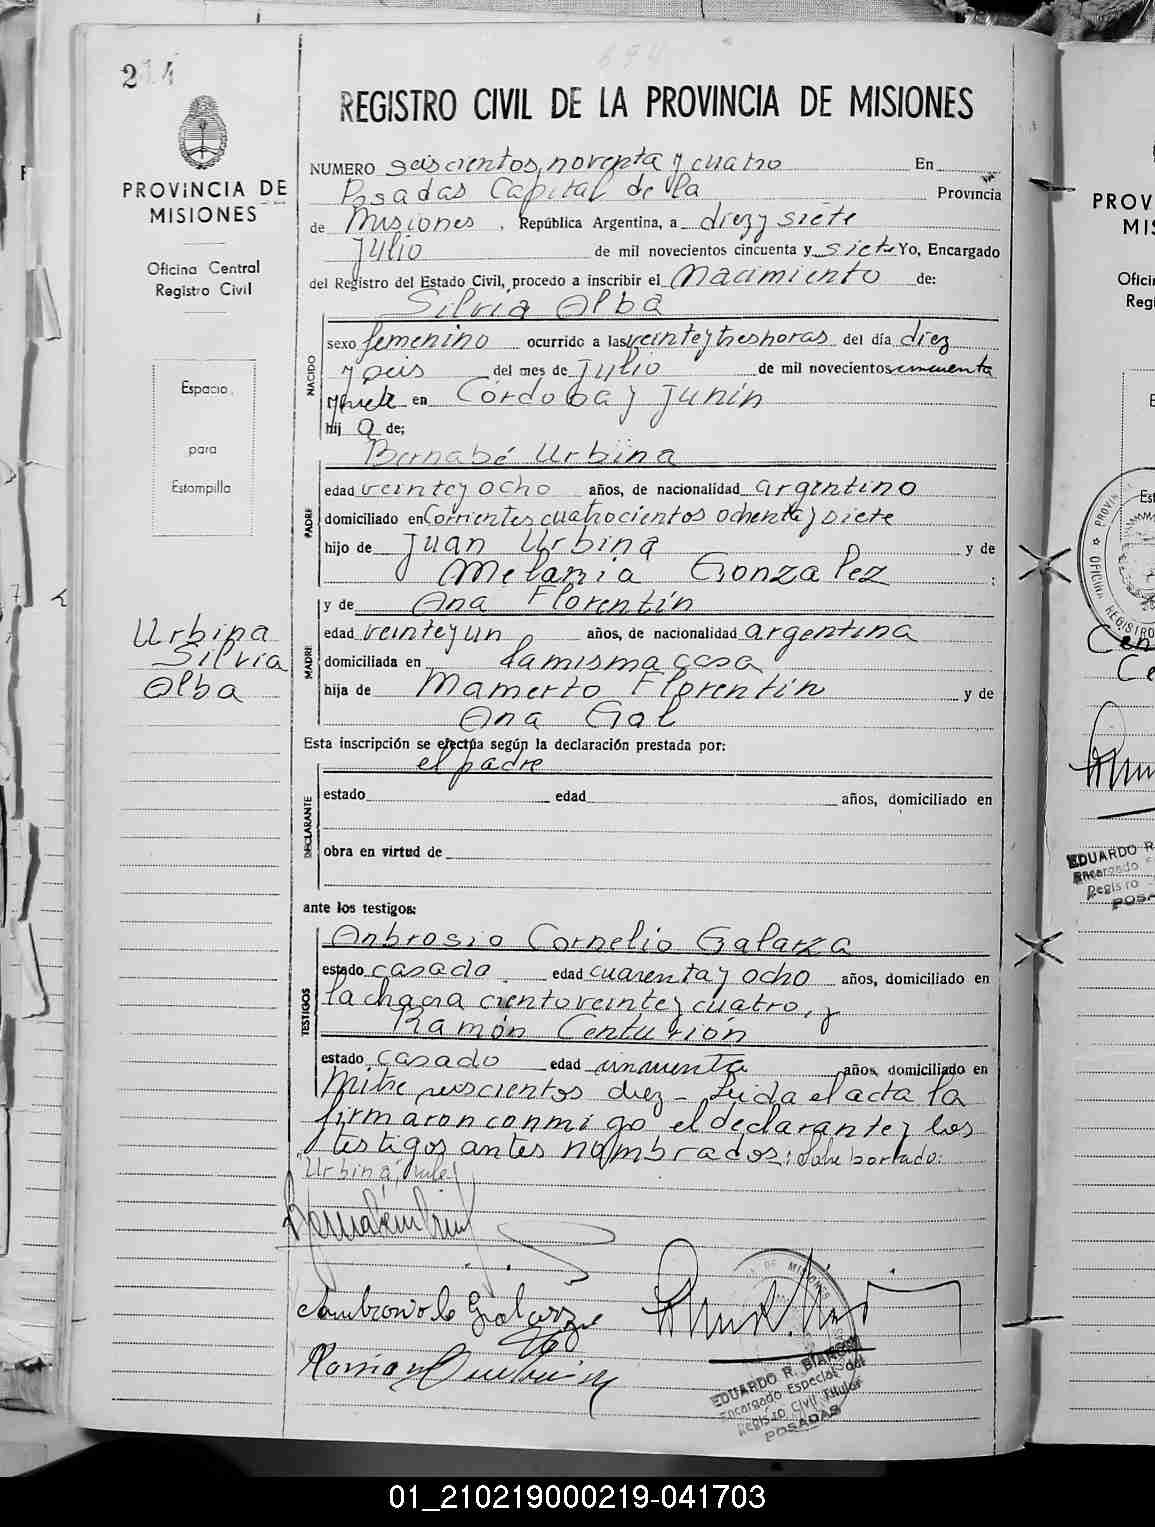 694
214
REGISTRO CIVIL DE LA PROVINCIA DE MISIONES
PROVINCIA DE
MISIONES
Oficina Central
Registro Civil
Espacio
para
Estampilla
Urbina
Silvia
Alba
NUMERO seiscientos noventa y cuatro En
Posadas Capital de la Provincia
de Misiones, República Argentina, a diez y siete
Julio de mil novecientos cincuenta y siete Yo, Encargado
del Registro del Estado Civil, procedo a inscribir el Nacimiento de:
Silvia Alba
NACIDO
sexo femenino ocurrido a las veinte y tres horas del día diez
y seis del mes de Julio de mil novecientos cincuenta
y siete en Córdoba y Junín
hij a de;
Bernabé Urbina
PADRE
edad veinte y ocho años, de nacionalidad argentino
domiciliado en Corrientes cuatrocientos ochenta y siete
hijo de Juan Urbina y de
Melania Gonzalez ;
y de Ana Florentín
MADRE
edad veinte y un años, de nacionalidad argentina
domiciliada en la misma casa
hija de Mamerto Florentín y de
Ana Gal
Esta inscripción se efectúa según la declaración prestada por:
el padre
DECLARANTE
estado edad años, domiciliado en
obra en virtud de
ante los testigos:
Anbrosio Cornelio Galarza
TESTIGOS
estado casado edad cuarenta y ocho años, domiciliado en
la chacra ciento veinte y cuatro, y
Ramón Centurión
estado casado edad cincuenta años, domiciliado en
Mitre seiscientos diez - Leida el acta la
firmaron conmigo el declarante y los
testigos antes nombrados: Sobre borrado:
Urbina,
EDUARDO R.
Encargado Especial del
Registro Civil Titular
POSADAS
PROV
MIS
Oficin
Regi
Cen
Ce
EDUARDO R
Encargado
Registro
POSA
01_210219000219-041703